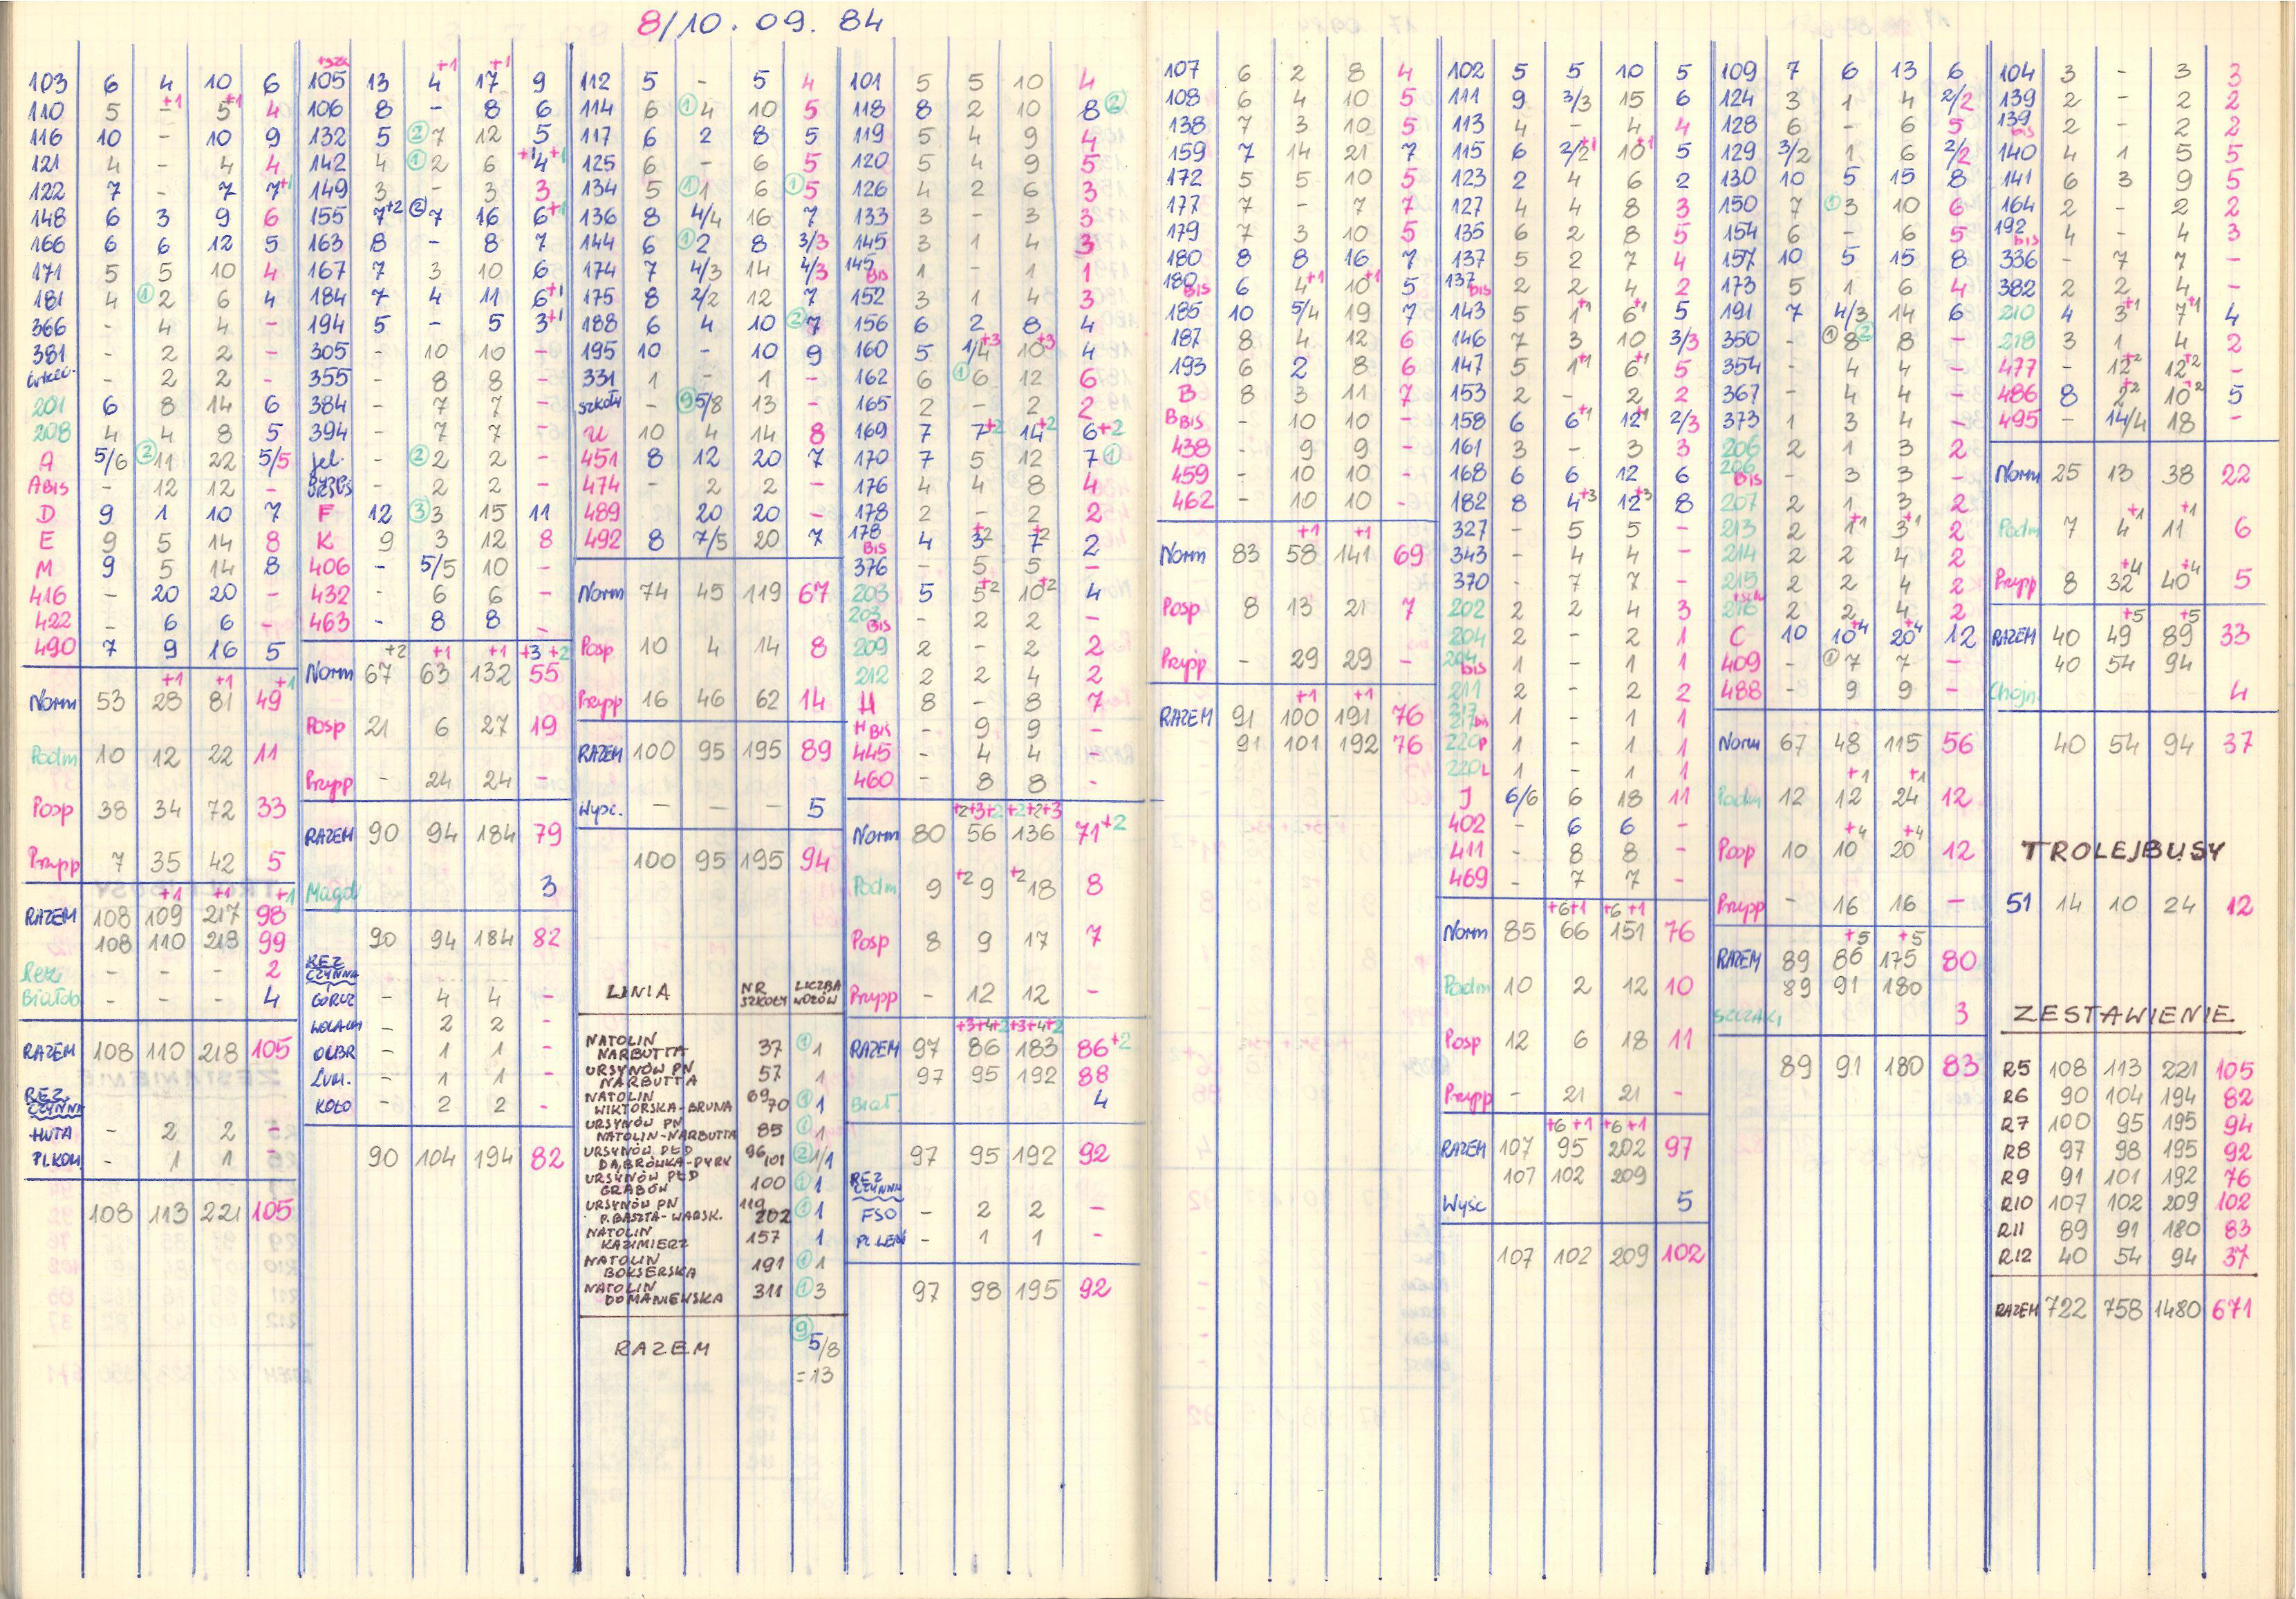 8/10. 09. 84
103 6 4 10 6
110 5 -+1 5+1 4
116 10 - 10 9
121 4 - 4 4
122 7 - 7 7+1
148 6 3 9 6
166 6 6 12 5
171 5 5 10 4
181 4 ①2 6 4
366 - 4 4 -
381 - 2 2 -
- 2 2 -
201 6 8 14 6
208 4 4 8 5
A 5/6 ②11 22 5/5
ABIS - 12 12 -
D 9 1 10 7
E 9 5 14 8
M 9 5 14 8
416 - 20 20 -
422 - 6 6 -
490 7 9 16 5
+1 +1 +1
Norm 53 28 81 49
Podm 10 12 22 11
Posp 38 34 72 33
Przysp 7 35 42 5
+1 +1 +1
RAZEM 108 109 217 98
108 110 218 99
Rez. - - - 2
Białob - - - 4
RAZEM 108 110 218 105
REZ CZYNNA
HUTA - 2 2 -
PL.KOM - 1 1 -
108 113 221 105
+szk
105 13 4+1 17+1 9
106 8 - 8 6
132 5 ②7 12 5
142 4 ①2 6 +1 4+1
149 3 - 3 3
155 7+2 ②7 16 6+1
163 8 - 8 7
167 7 3 10 6
184 7 4 11 6+1
194 5 - 5 3+1
305 - 10 10 -
355 - 8 8 -
384 - 7 7 -
394 - 7 7 -
Jel. - ②2 2 -
URSUS - 2 2 -
F 12 ③3 15 11
K 9 3 12 8
406 - 5/5 10 -
432 - 6 6 -
463 - 8 8 -
+2 +1 +1 +3 +2
Norm 67 63 132 55
Posp 21 6 27 19
Przysp - 24 24 -
RAZEM 90 94 184 79
Magd 3
90 94 184 82
REZ CZYNNA
GÓRCZ - 4 4 -
- 2 2 -
OLBR - 1 1 -
- 1 1 -
KOŁO - 2 2 -
90 104 194 82
112 5 - 5 4
114 6 ①4 10 5
117 6 2 8 5
125 6 - 6 5
134 5 ①1 6 ①5
136 8 4/4 16 7
144 6 ①2 8 3/3
174 7 4/3 14 4/3
175 8 2/2 12 7
188 6 4 10 ②7
195 10 - 10 9
331 1 - 1 -
szkoły - ⑨5/8 13 -
U 10 4 14 8
451 8 12 20 7
474 - 2 2 -
489 20 20 -
492 8 7/5 20 7
Norm 74 45 119 67
Posp 10 4 14 8
Przysp 16 46 62 14
RAZEM 100 95 195 89
Wyśc. - - - 5
100 95 195 94
LINIA NR SZKOŁY LICZBA WOZÓW
NATOLIN
NARBUTTA 37 ①1
URSYNÓW PN
NARBUTTA 57 1
NATOLIN
WIKTORSKA-BRUNA 69/70 ①1
URSYNÓW PN
NATOLIN-NARBUTTA 85 ①1
URSYNÓW PŁD
DĄBRÓWKA-PYRY 96/101 ②1/1
URSYNÓW PŁD
GRABÓW 100 ①1
URSYNÓW PN
P.BASZTA-WARSK. 119 202 ①1
NATOLIN
KAZIMIERZ 157 1
NATOLIN
BOKSERSKA 191 ①1
NATOLIN
DOMANIEWSKA 311 ①3
RAZEM ⑨ 5/8
=13
101 5 5 10 4
118 8 2 10 8②
119 5 4 9 4
120 5 4 9 5
126 4 2 6 3
133 3 - 3 3
145 3 1 4 3
145 BIS 1 - 1 1
152 3 1 4 3
156 6 2 8 4
160 5 1/4+3 10+3 4
162 6 ①6 12 6
165 2 - 2 2
169 7 7+2 14+2 6+2
170 7 5 12 7①
176 4 4 8 4
178 2 - 2 2
178 BIS 4 3+2 7+2 2
376 - 5 5 -
203 5 5+2 10+2 4
203 BIS - 2 2 -
209 2 - 2 2
212 2 2 4 2
H 8 - 8 7
H BIS - 9 9 -
445 - 4 4 -
460 - 8 8 -
+2+3+2 +2+2+3
Norm 80 56 136 71+2
Podm 9 +2 9 +2 18 8
Posp 8 9 17 7
Przysp - 12 12 -
+3+4+2 +3+4+2
RAZEM 97 86 183 86+2
97 95 192 88
Biał. 4
97 95 192 92
REZ CZYNNA
FSO - 2 2 -
PL.LEN - 1 1 -
97 98 195 92
107 6 2 8 4
108 6 4 10 5
138 7 3 10 5
159 7 14 21 7
172 5 5 10 5
177 7 - 7 7
179 7 3 10 5
180 8 8 16 7
180 BIS 6 4+1 10+1 5
185 10 5/4 19 7
187 8 4 12 6
193 6 2 8 6
B 8 3 11 7
BBIS - 10 10 -
438 - 9 9 -
459 - 10 10 -
462 - 10 10 -
+1 +1
Norm 83 58 141 69
Posp 8 13 21 7
Przysp - 29 29 -
+1 +1
RAZEM 91 100 191 76
91 101 192 76
102 5 5 10 5
111 9 3/3 15 6
113 4 - 4 4
115 6 2/2+1 10+1 5
123 2 4 6 2
127 4 4 8 3
135 6 2 8 5
137 5 2 7 4
137 BIS 2 2 4 2
143 5 1+1 6+1 5
146 7 3 10 3/3
147 5 1+1 6+1 5
153 2 - 2 2
158 6 6+1 12+1 2/3
161 3 - 3 3
168 6 6 12 6
182 8 4+3 12+3 8
327 - 5 5 -
343 - 4 4 -
370 - 7 7 -
202 2 2 4 3
204 2 - 2 1
204 bis 1 - 1 1
211 2 - 2 2
217 bis 1 - 1 1
220P 1 - 1 1
220L 1 - 1 1
J 6/6 6 18 11
402 - 6 6 -
411 - 8 8 -
469 - 7 7 -
+6+1 +6 +1
Norm 85 66 151 76
Podm 10 2 12 10
Posp 12 6 18 11
Przysp - 21 21 -
+6 +1 +6 +1
RAZEM 107 95 202 97
107 102 209
Wyśc 5
107 102 209 102
109 7 6 13 6
124 3 1 4 2/2
128 6 - 6 5
129 3/2 1 6 2/2
130 10 5 15 8
150 7 ①3 10 6
154 6 - 6 5
157 10 5 15 8
173 5 1 6 4
191 7 4/3 14 6
350 - ①8② 8 -
354 - 4 4 -
367 - 4 4 -
373 1 3 4 -
206 2 1 3 2
206 Bis - 3 3 -
207 2 1 3 2
213 2 1+1 3+1 2
214 2 2 4 2
215 2 2 4 2
216 +szk 2 2 4 2
C 10 10+4 20+4 12
409 - ①7 7 -
488 - 9 9 -
Norm 67 48 115 56
+1 +1
Podm 12 12 24 12
+4 +4
Posp 10 10 20 12
Przysp - 16 16 -
+5 +5
RAZEM 89 86 175 80
89 91 180
SZCZAKI 3
89 91 180 83
104 3 - 3 3
139 2 - 2 2
139 bis 2 - 2 2
140 4 1 5 5
141 6 3 9 5
164 2 - 2 2
192 bis 4 - 4 3
336 - 7 7 -
382 2 2 4 -
210 4 3+1 7+1 4
218 3 1 4 2
477 - 12+2 12+2 -
486 8 2+2 10+2 5
495 - 14/4 18 -
Norm 25 13 38 22
Podm 7 4+1 11+1 6
Przysp 8 32+4 40+4 5
+5 +5
RAZEM 40 49 89 33
40 54 94
Chojn. 4
40 54 94 37
TROLEJBUSY
51 14 10 24 12
ZESTAWIENIE
R5 108 113 221 105
R6 90 104 194 82
R7 100 95 195 94
R8 97 98 195 92
R9 91 101 192 76
R10 107 102 209 102
R11 89 91 180 83
R12 40 54 94 37
RAZEM 722 758 1480 671